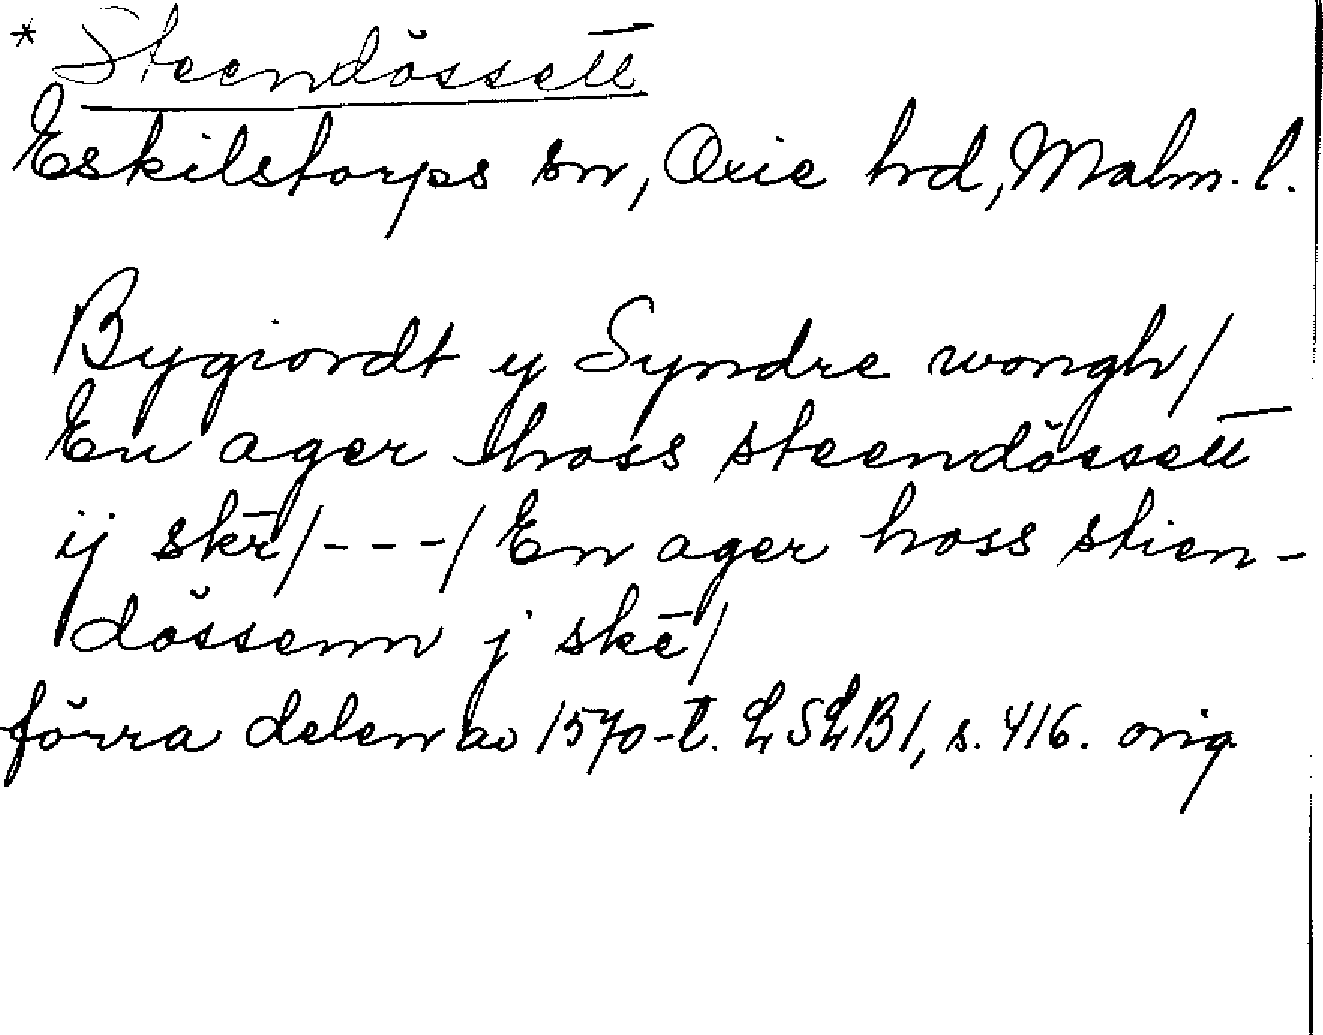 * Steendössett
Eskilstorps sn, Oxie hd, Malm. l.
Bygiordt y Syndre wongh/
En ager hoss steendössett
ij skē/---/ En ager hoss stien-
dössenn j skē/
förra delen av 1570-t. LSLB1, s. 416. orig